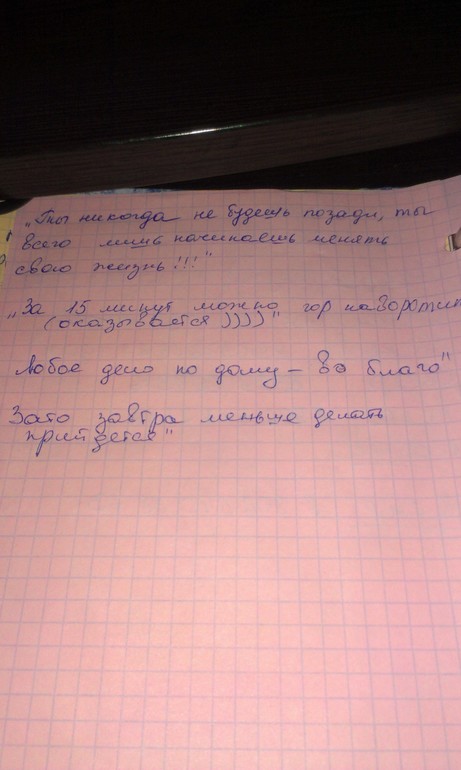 „Ты никогда не будешь позади, ты
всего лишь начинаешь менять
свою жизнь!!!"
„За 15 минут можно гор наворотить
(оказывается))))"
Любое дело по дому – во благо"
Зато завтра меньше делать
прийдется"